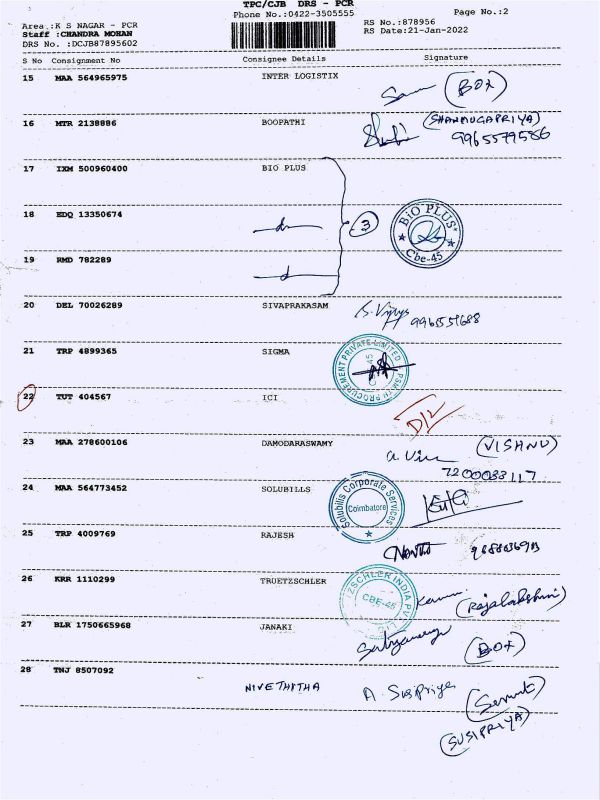 TPC/CJB DRS - PCR
Phone No.:0422-3505555
Page No.:2
Area :K S NAGAR - PCR
RS No.:878956
Staff :CHANDRA MOHAN
RS Date:21-Jan-2022
DRS No. :DCJB87895602
S No Consignment No Consignee Details Signature
15 MAA 564965975 INTER LOGISTIX
(BOX)
16 MTR 2138886 BOOPATHI
(SHANMUGAPRIYA)
9965579586
17 IXM 500960400 BIO PLUS
18 EDQ 13350674
3
BIO PLUS
Cbe-45
19 RMD 782289
20 DEL 70026289 SIVAPRAKASAM
9965551688
21 TRP 4899365 SIGMA
PROCUREMENT PRIVATE LIMITED
CBE-45
22 TUT 404567 ICI
D/L
23 MAA 278600106 DAMODARASWAMY
(VISHNU)
7200033117
24 MAA 564773452 SOLUBILLS
Solubilis Corporate Services
Coimbatore
25 TRP 4009769 RAJESH
26 KRR 1110299 TRUETZSCHLER
ZSCHLER INDIA PV
CBE-45
(Rajalakshmi)
27 BLR 1750665968 JANAKI
(BOX)
28 TNJ 8507092
NIVETHITHA A. Susipriya
(SUSIPRIYA)